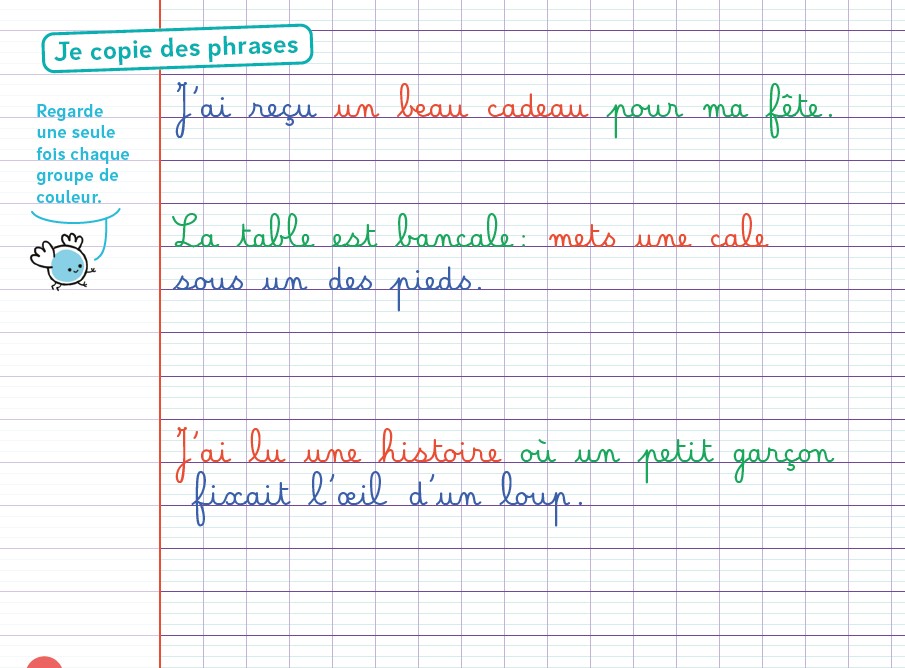 Je copie des phrases
Regarde
une seule
fois chaque
groupe de
couleur.
J'ai reçu un beau cadeau pour ma fête.
La table est bancale : mets une cale
sous un des pieds.
J'ai lu une histoire où un petit garçon
fixait l'œil d'un loup.